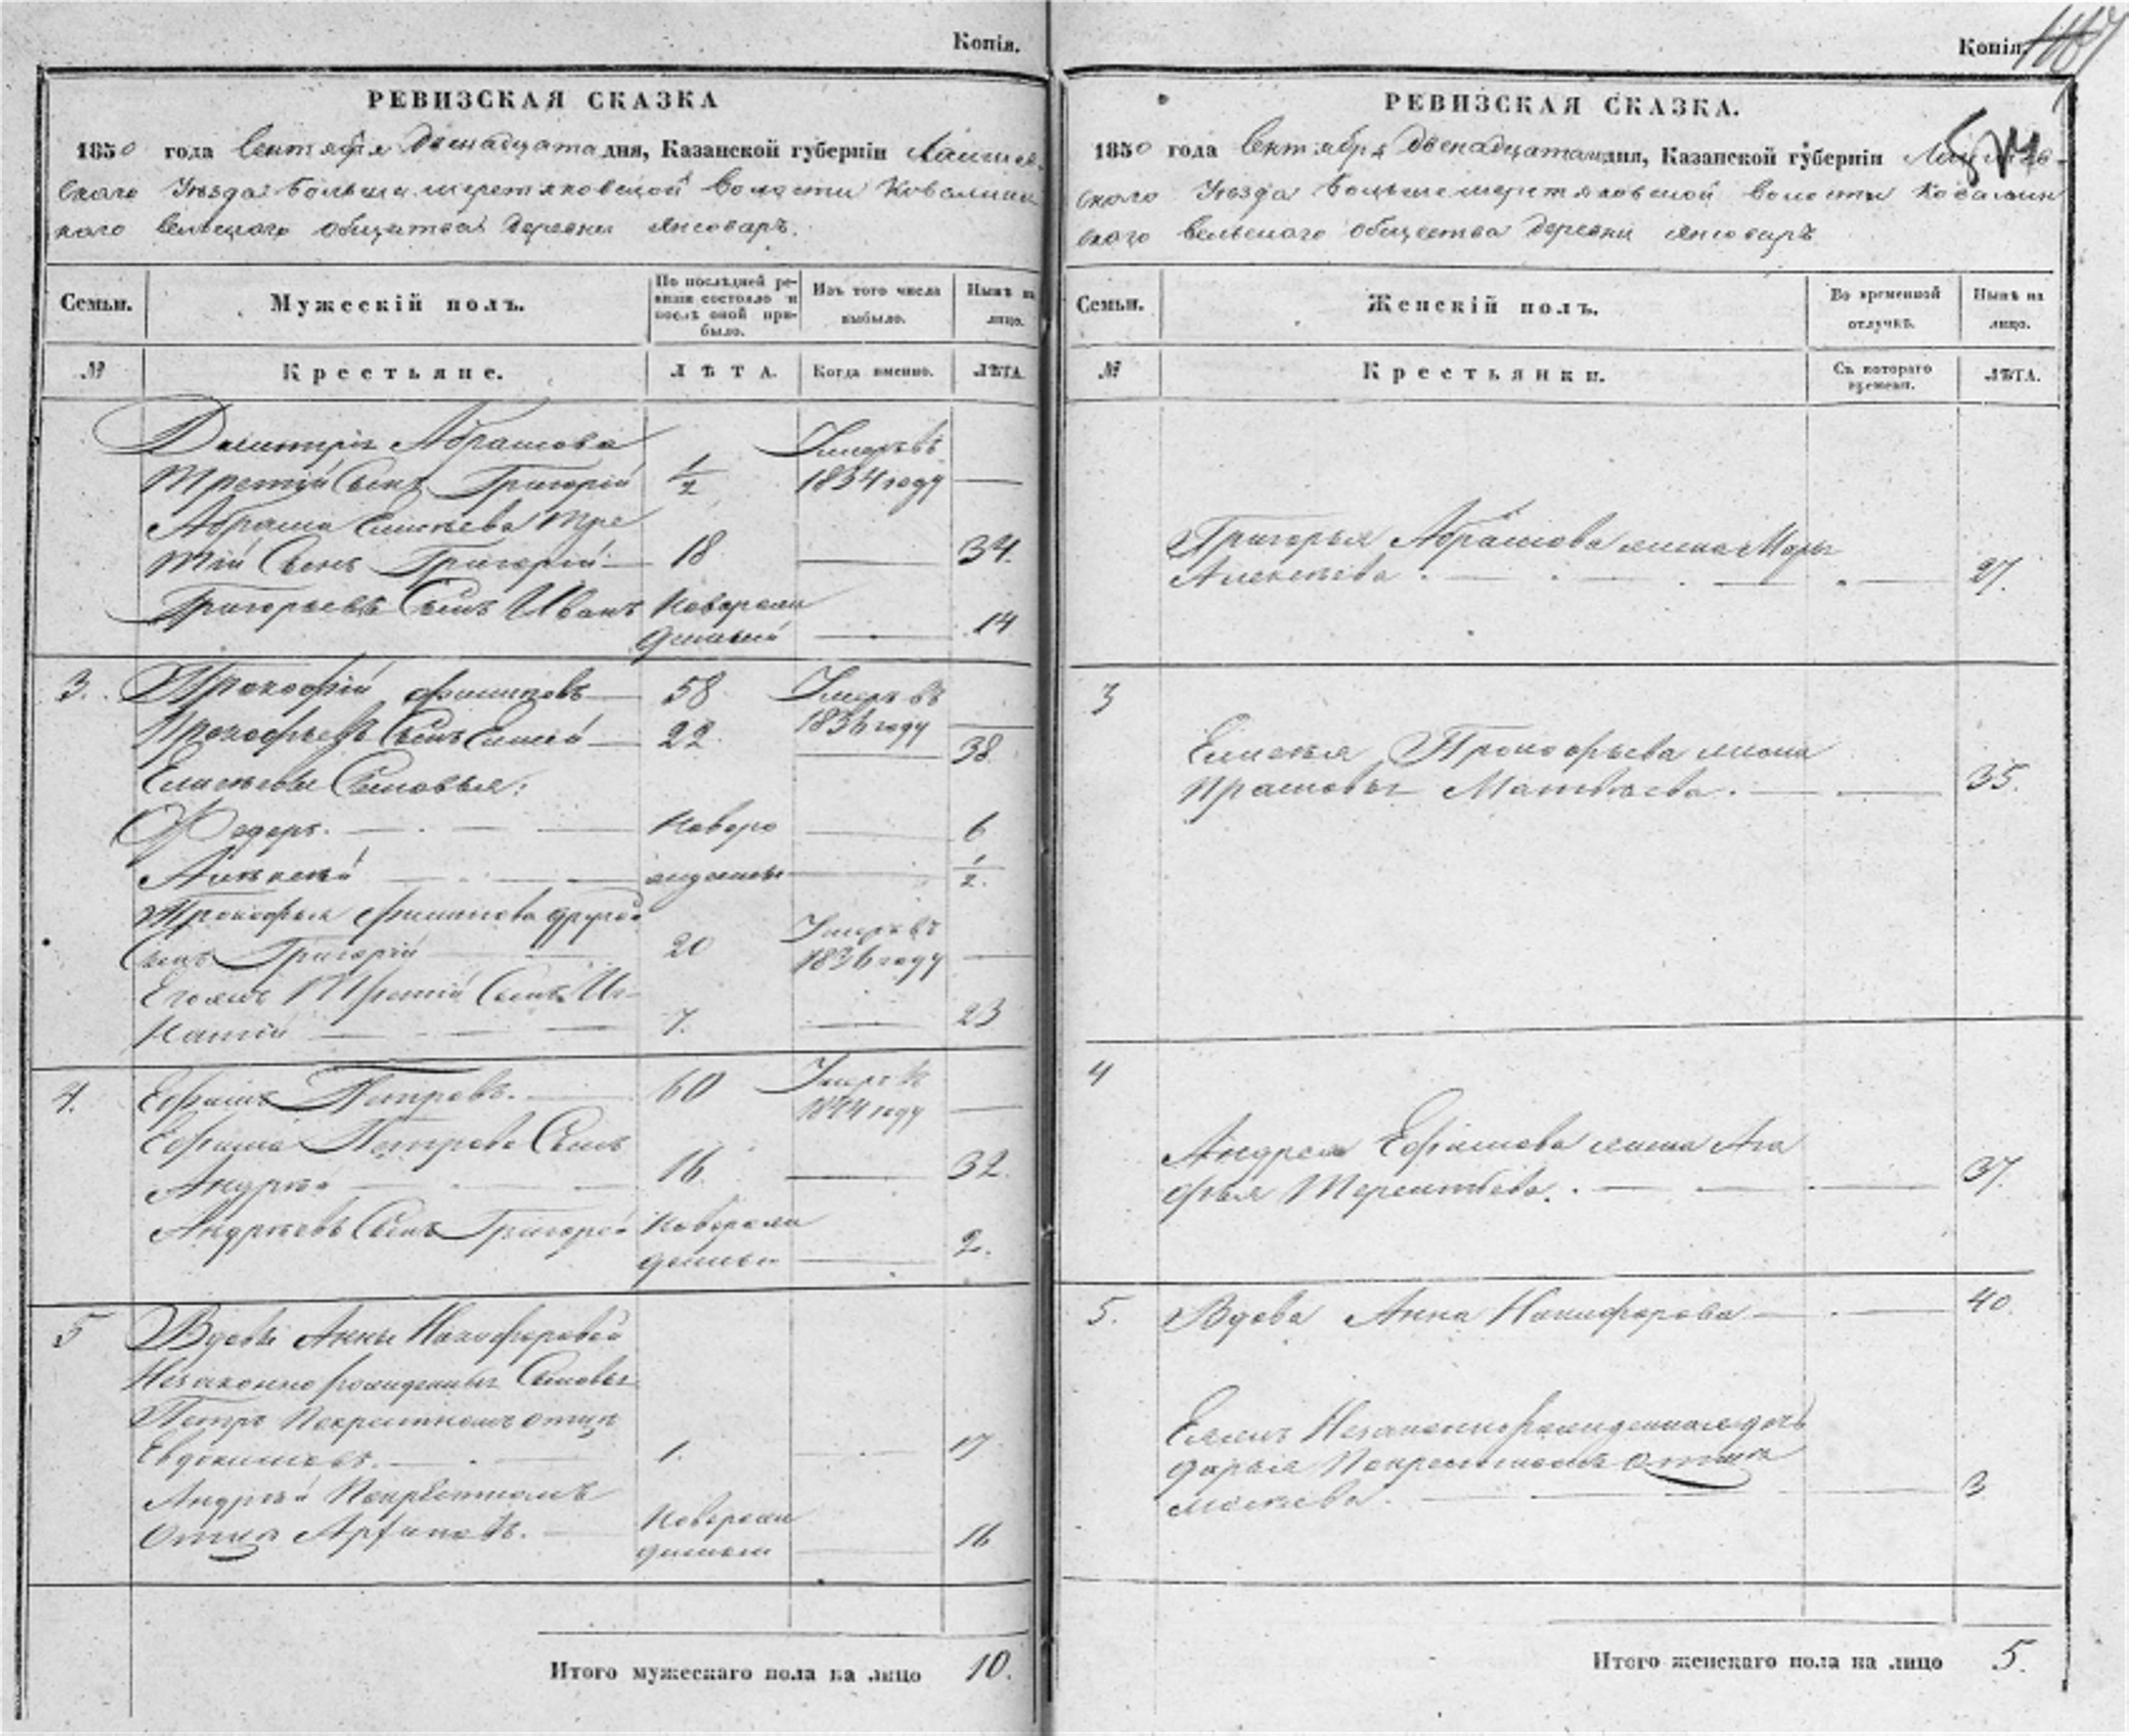 Копія.
РЕВИЗСКАЯ СКАЗКА
1850 года Сентября двенадцата дня, Казанской губерніи Лаишев-
скаго Уѣзда Больше Волости
скаго Сельскаго общества деревни Янсоваръ.
Семьи.
Мужескій полъ.
По послѣдней ре-
визіи состояло и
послѣ оной при-
было.
Изъ того числа
выбыло.
Нынѣ на
лицо.
№
Крестьяне.
ЛѢТА.
Когда именно.
ЛѢТА.
Дмитрія Абрамова
третій Сынъ Григорій 1/2 Умеръ въ 1834 году —
Абрама Елисѣева тре
тій Сынъ Григорій 18 — 34.
Григорьевъ Сынъ Иванъ Новорож
денный — 14
3. Прокофій Филиповъ 58 Умеръ въ 1836 году —
Прокофьевъ Сынъ Елисей 22 — 38
Елисѣевы Сыновья:
Федоръ. Новоро — 6
Алексѣй жденны — 1/2.
Прокофья Филипова другой
Сынъ Григорій 20 Умеръ въ 1836 году —
Егожъ Третій Сынъ Иг-
натій 7. — 23
4. Ефимъ Петровъ. 60 Умеръ въ 1844 году —
Ефима Петрова Сынъ
Андрей 16. — 32.
Андрѣевъ Сынъ Григорей Новорож
денны — 2.
5 Вдовы Анны Никифоровой
Незаконнорожденныя Сыновья
Петръ По крестномъ отцѣ
Евдокимовъ. 1. — 17
Андрѣй По крестномъ
отцѣ Новорож
денный — 16
Итого мужескаго пола на лицо 10.
Копія.
РЕВИЗСКАЯ СКАЗКА.
1850 года Сентября двенадцатаго дня, Казанской губерніи Лаишев-
скаго Уѣзда Больше Волости
скаго Сельскаго общества деревни Янсоваръ
Семьи.
Женскій полъ.
Во временной
отлучкѣ.
Нынѣ на
лицо.
№
Крестьянки.
Съ котораго
времени.
ЛѢТА.
Григорья Абрамова жена Марья
Алексѣева. 27.
3
Елисѣя Прокофьева жена
Прасковья Матвѣева. 35.
4
Андрея Ефимова жена Ага
фья Терентьева. 37.
5. Вдова Анна Никифорова 40.
Еяжъ Незаконнорожденная дочь
Дарья По крестномъ отцѣ
3
Итого женскаго пола на лицо 5.